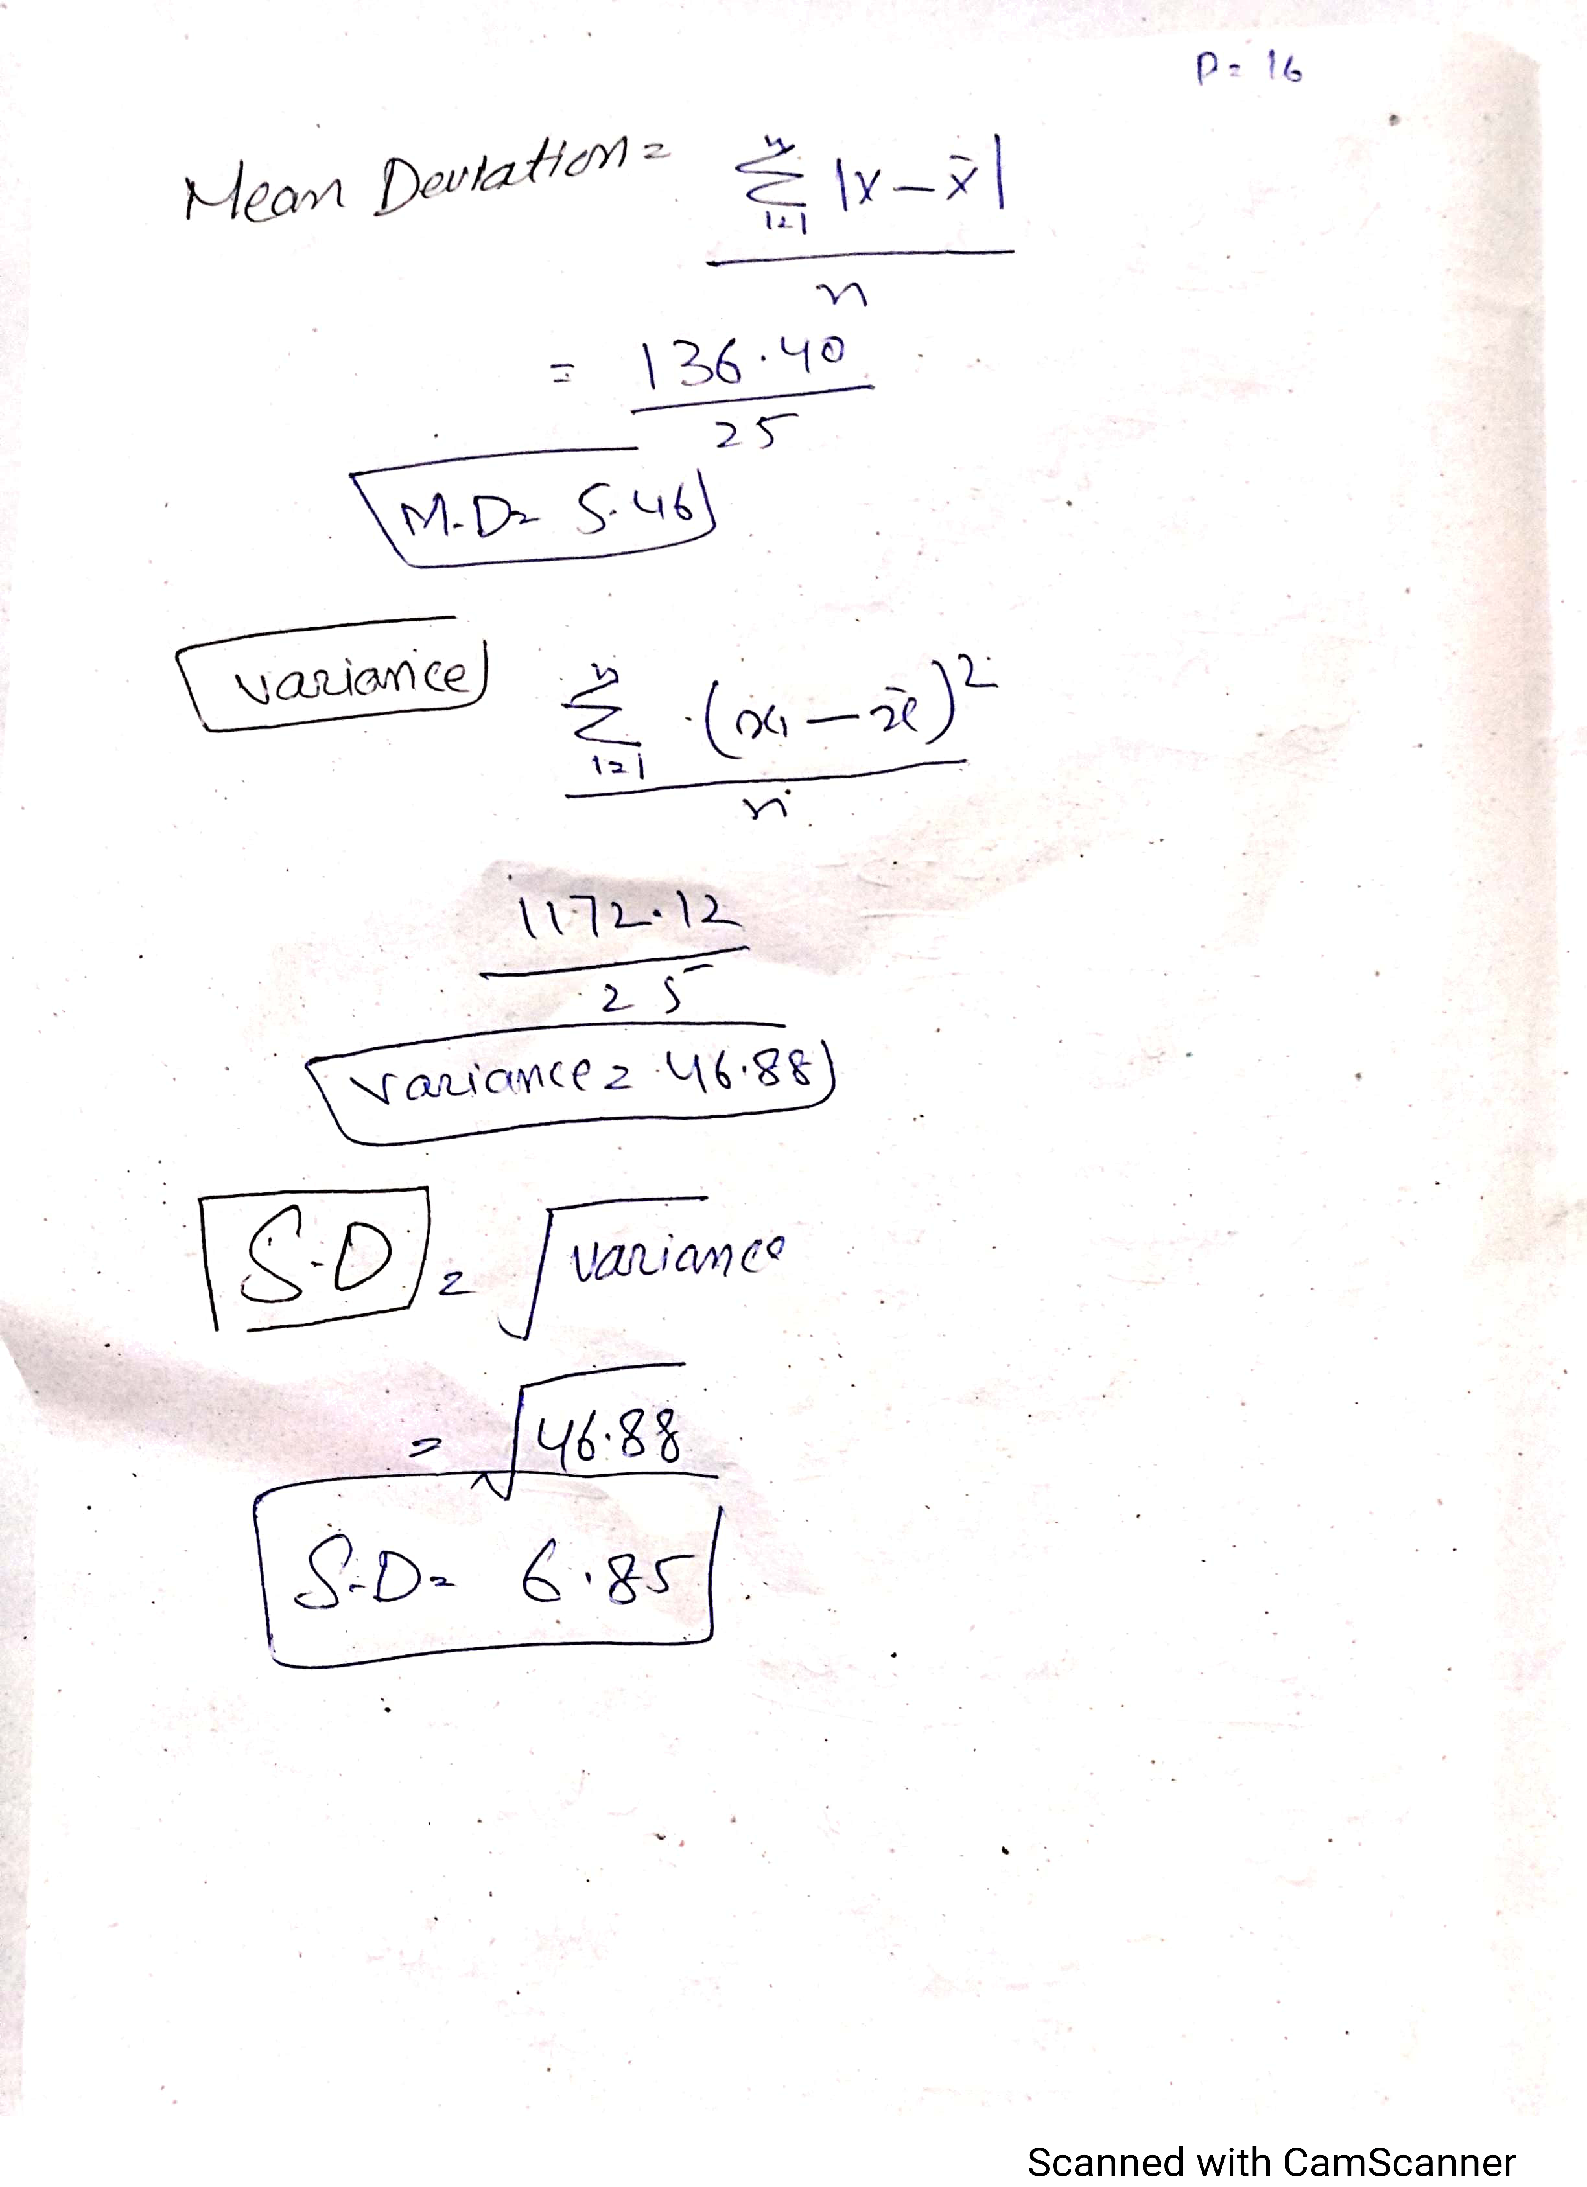 P= 16
Mean Deviation = $\frac{\sum_{i=1}^{n} |x - \bar{x}|}{n}$
= $\frac{136.40}{25}$
M.D = 5.46
variance $\frac{\sum_{i=1}^{n} (x_i - \bar{x})^2}{n}$
$\frac{1172.12}{25}$
variance = 46.88
S.D = $\sqrt{variance}$
= $\sqrt{46.88}$
S.D = 6.85
Scanned with CamScanner